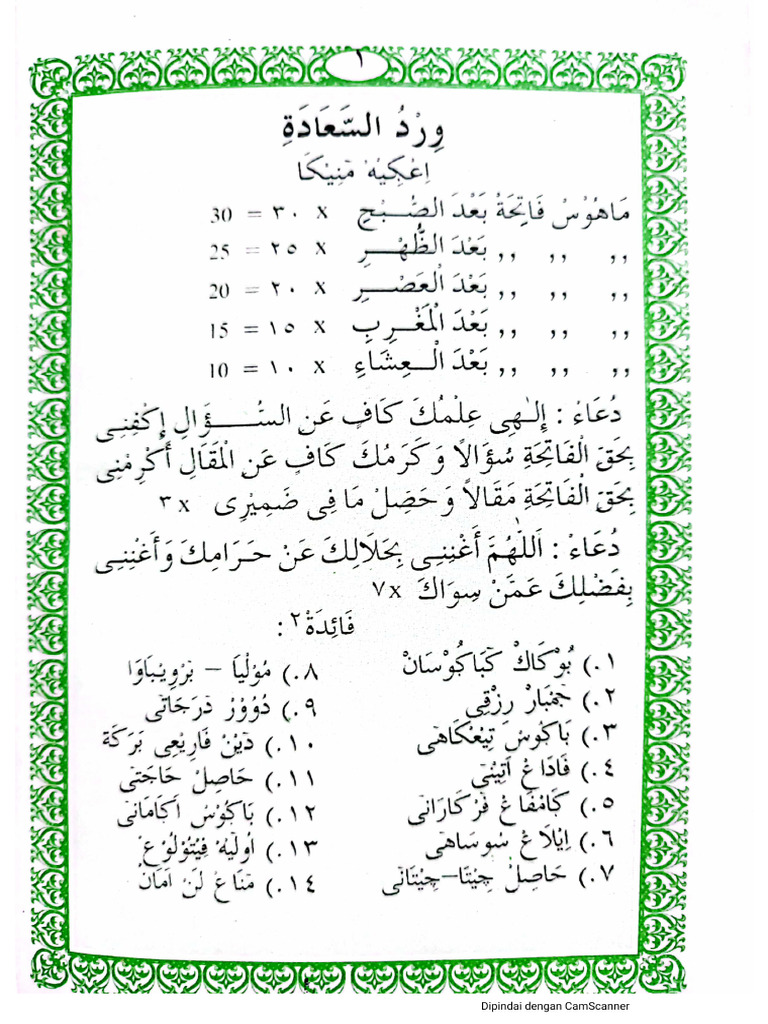 ١
وِرْدُ السَّعَادَةِ
اِعْكِيْهْ مَنِيْكَا
مَاهُوْسْ فَاتِحَةْ بَعْدَ الصُّبْحِ x ٣٠ = 30
,, ,, ,, بَعْدَ الظُّهْرِ x ٢٥ = 25
,, ,, ,, بَعْدَ الْعَصْرِ x ٢٠ = 20
,, ,, ,, بَعْدَ الْمَغْرِبِ x ١٥ = 15
,, ,, ,, بَعْدَ الْعِشَاءِ x ١٠ = 10
دُعَاءْ : إِلٰهِى عِلْمُكَ كَافٍ عَنِ السُّؤَالِ إِكْفِنِى
بِحَقِّ الْفَاتِحَةِ سُؤَالًا وَكَرَمُكَ كَافٍ عَنِ الْمَقَالِ أَكْرِمْنِى
بِحَقِّ الْفَاتِحَةِ مَقَالًا وَحَصِّلْ مَا فِى ضَمِيْرِى ٣x
دُعَاءْ : اَللّٰهُمَّ أَغْنِنِى بِحَلَالِكَ عَنْ حَرَامِكَ وَأَغْنِنِى
بِفَضْلِكَ عَمَّنْ سِوَاكَ ٧x
فَائِدَةْ٢ :
١.) بُوْكَاكْ كَبَاكُوْسَانْ
٢.) جَمْبَارْ رِزْقِى
٣.) بَاكُوْسَ تِيْعْكَاهَى
٤.) فَادَاعْ اَتِيْنَى
٥.) كَامْفَاعْ فَرْكَارَانَى
٦.) اِيْلَاعْ سُوْسَاهَى
٧.) حَاصِلْ چِيْتَا–چِيْتَانَى
٨.) مُوْلْيَا – بَرْوِيْبَاوَا
٩.) دُوْوُرْ دَرَجَاتَى
١٠.) دَيْنْ فَارِيْعِى بَرَكَةْ
١١.) حَاصِلْ حَاجَتَى
١٢.) بَاكُوْسْ اَكَامَانَى
١٣.) اُوْلَيْهْ فِيْتُوْلُوْعْ
١٤.) مَنَاعْ لَنْ اَمَانْ
Dipindai dengan CamScanner